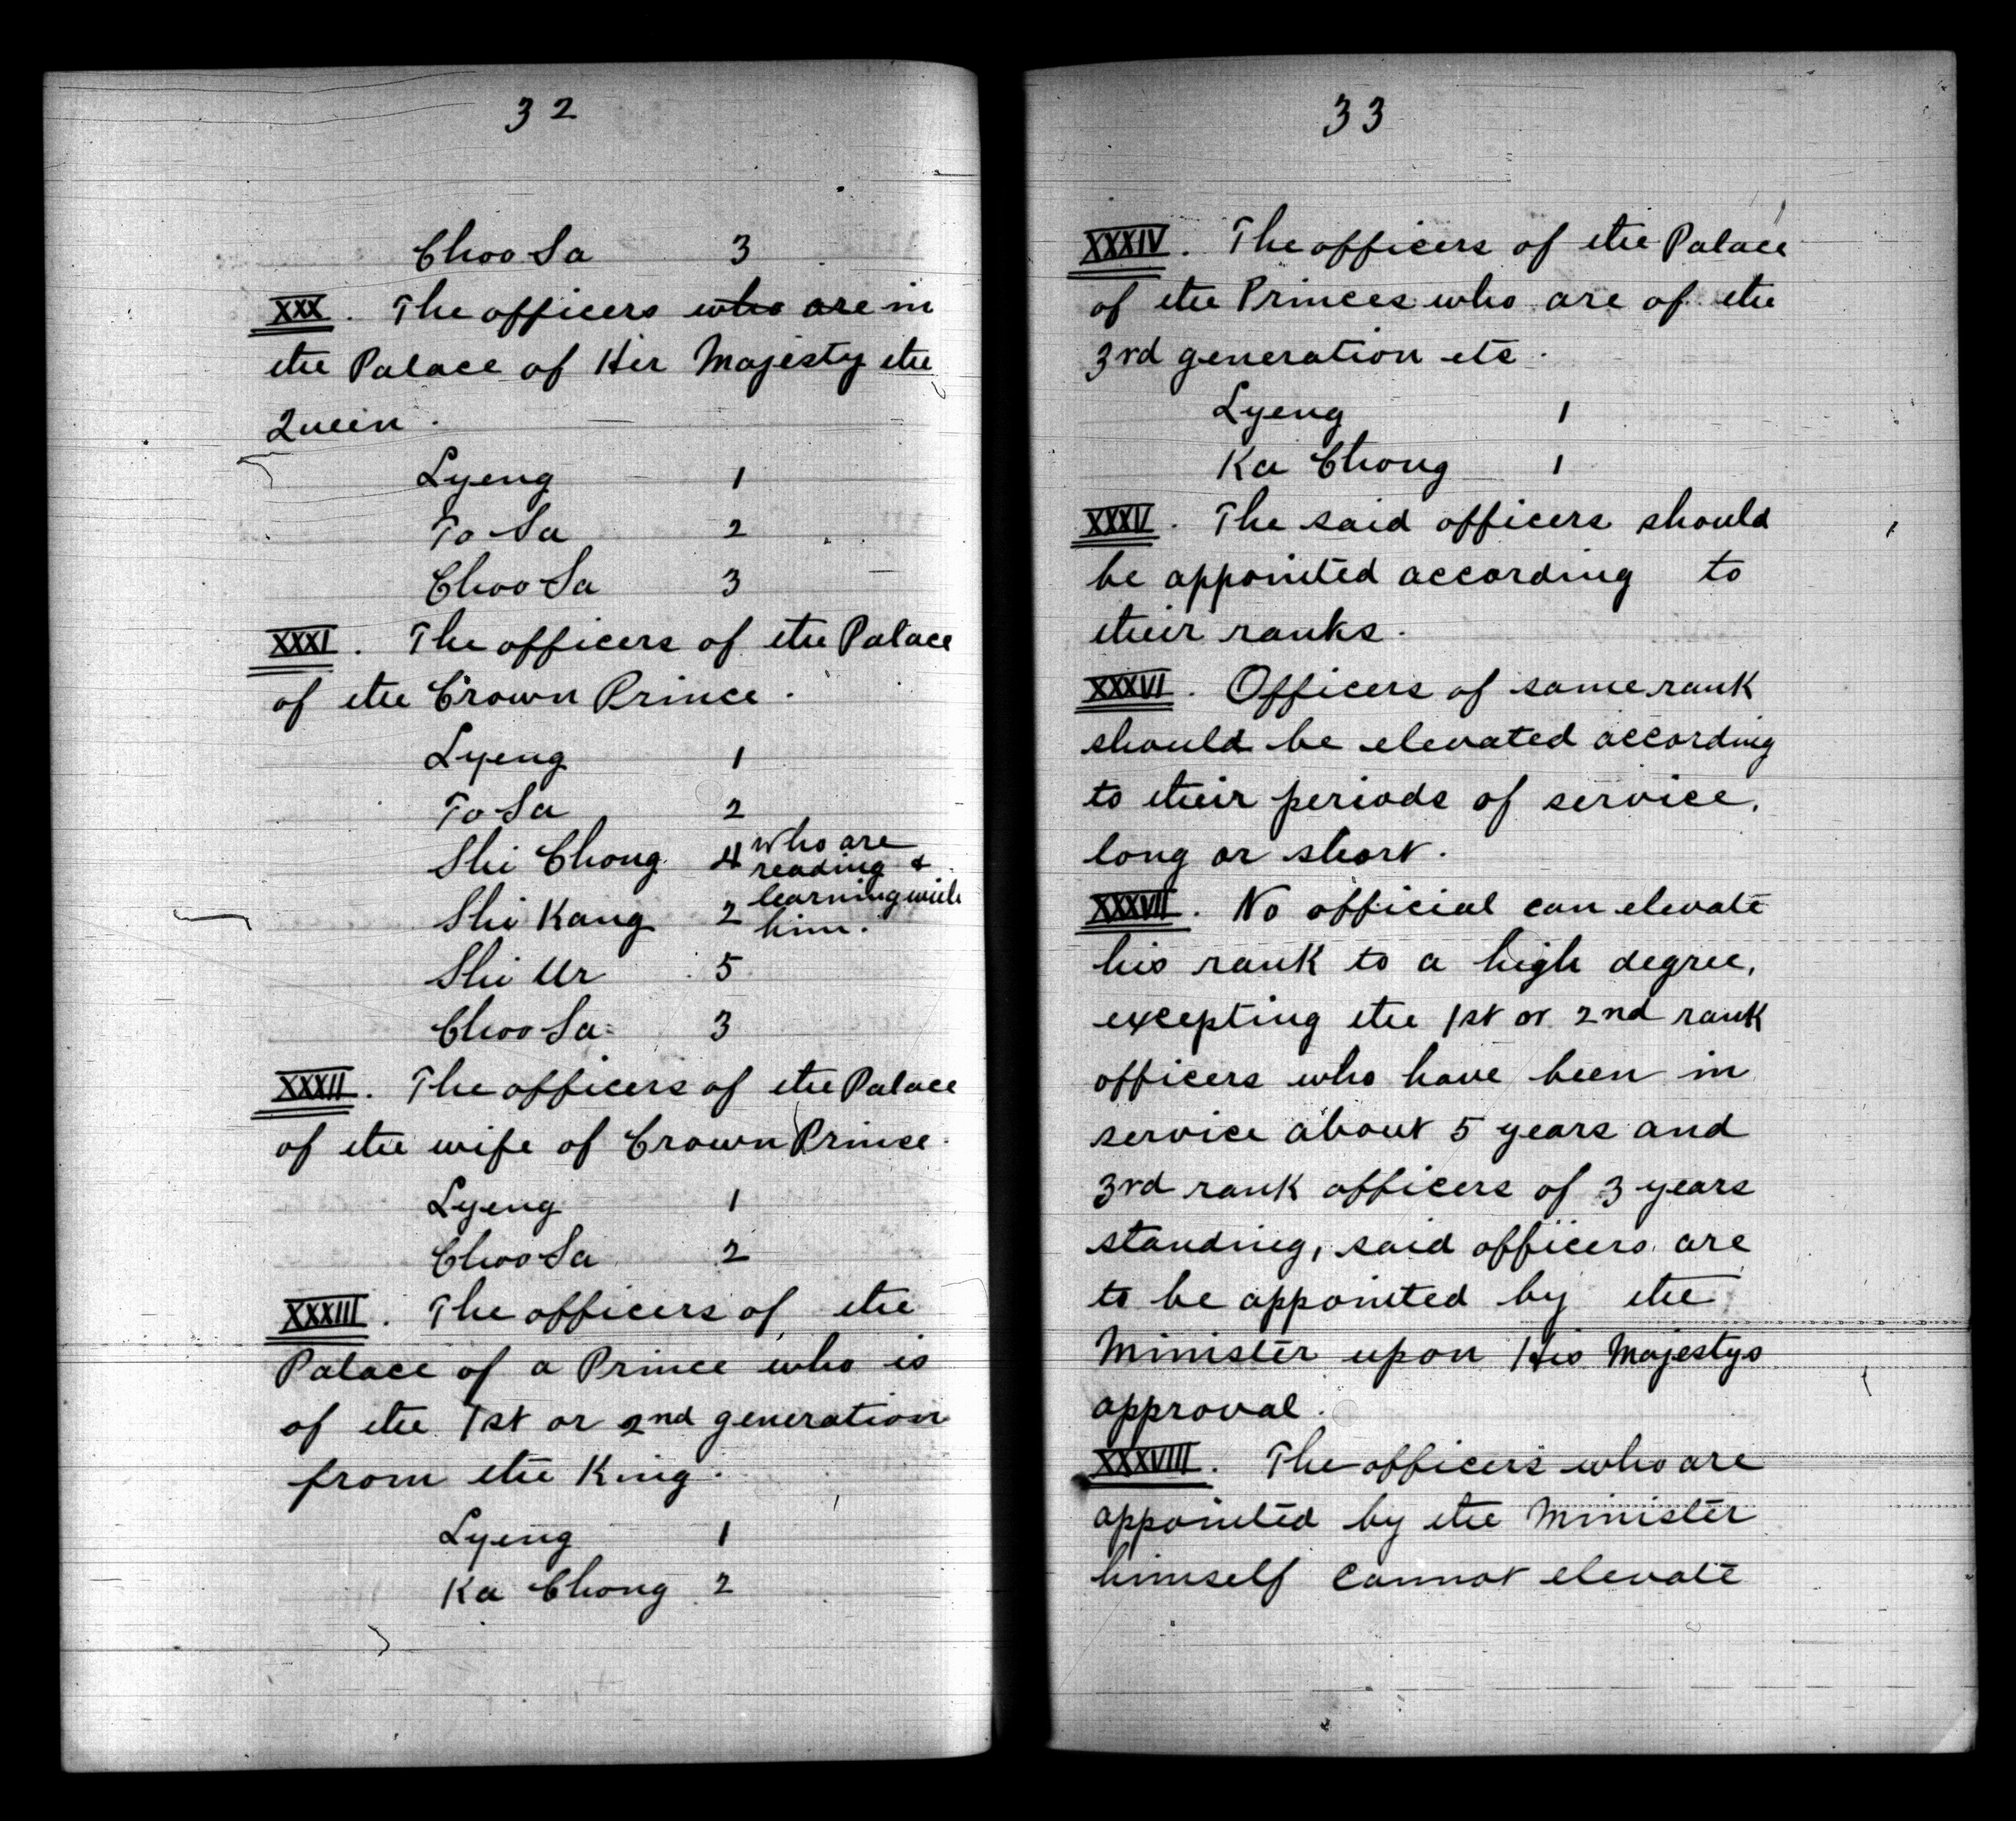 32
Choo Sa 3
XXX. The officers who are in
the Palace of Her Majesty the
Queen.
Lyeng 1
To Sa 2
Choo Sa 3
XXXI. The officers of the Palace
of the Crown Prince.
Lyeng 1
To Sa 2
Shi Chong 4 who are
reading &
Shi Kang 2 learning with
him.
Shi Ur 5
Choo Sa 3
XXXII. The officers of the Palace
of the wife of Crown Prince.
Lyeng 1
Choo Sa 2
XXXIII. The officers of the
Palace of a Prince who is
of the 1st or 2nd generation
from the King.
Lyeng 1
Ka Chong 2
33
XXXIV. The officers of the Palace
of the Princes who are of the
3rd generation etc.
Lyeng 1
Ka Chong 1
XXXV. The said officers should
be appointed according to
their ranks.
XXXVI. Officers of same rank
should be elevated according
to their periods of service,
long or short.
XXXVII. No official can elevate
his rank to a high degree,
excepting the 1st or 2nd rank
officers who have been in
service about 5 years and
3rd rank officers of 3 years
standing, said officers are
to be appointed by the
Minister upon His Majestys
approval.
XXXVIII. The officers who are
appointed by the Minister
himself cannot elevate